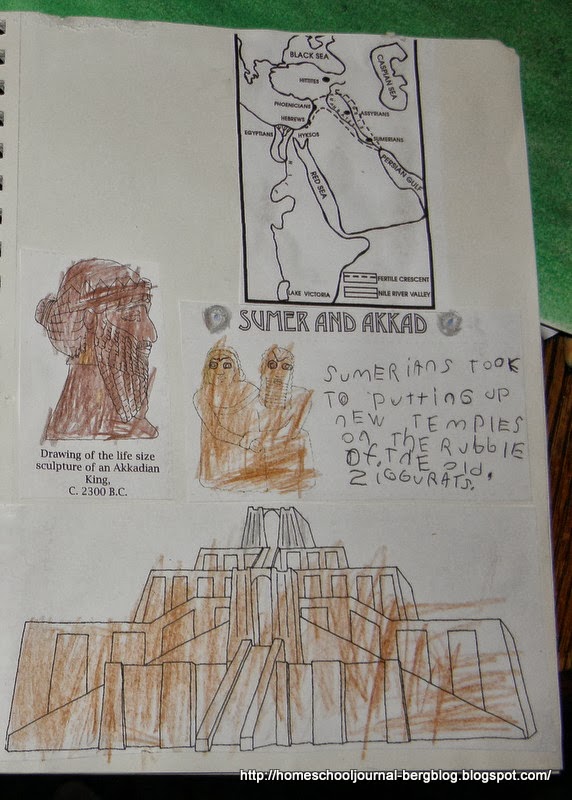 BLACK SEA
CASPIAN SEA
HITTITES
PHOENICIANS
ASSYRIANS
HEBREWS
EGYPTIANS
HYKSOS
SUMERIANS
PERSIAN GULF
RED SEA
LAKE VICTORIA
FERTILE CRESCENT
NILE RIVER VALLEY
SUMER AND AKKAD
SUMERIANS TOOK
TO PUTTING UP
NEW TEMPLES
ON THE RUBBLE
OF THE OLD
ZIGGURATS.
Drawing of the life size
sculpture of an Akkadian
King,
C. 2300 B.C.
http://homeschooljournal-bergblog.blogspot.com/